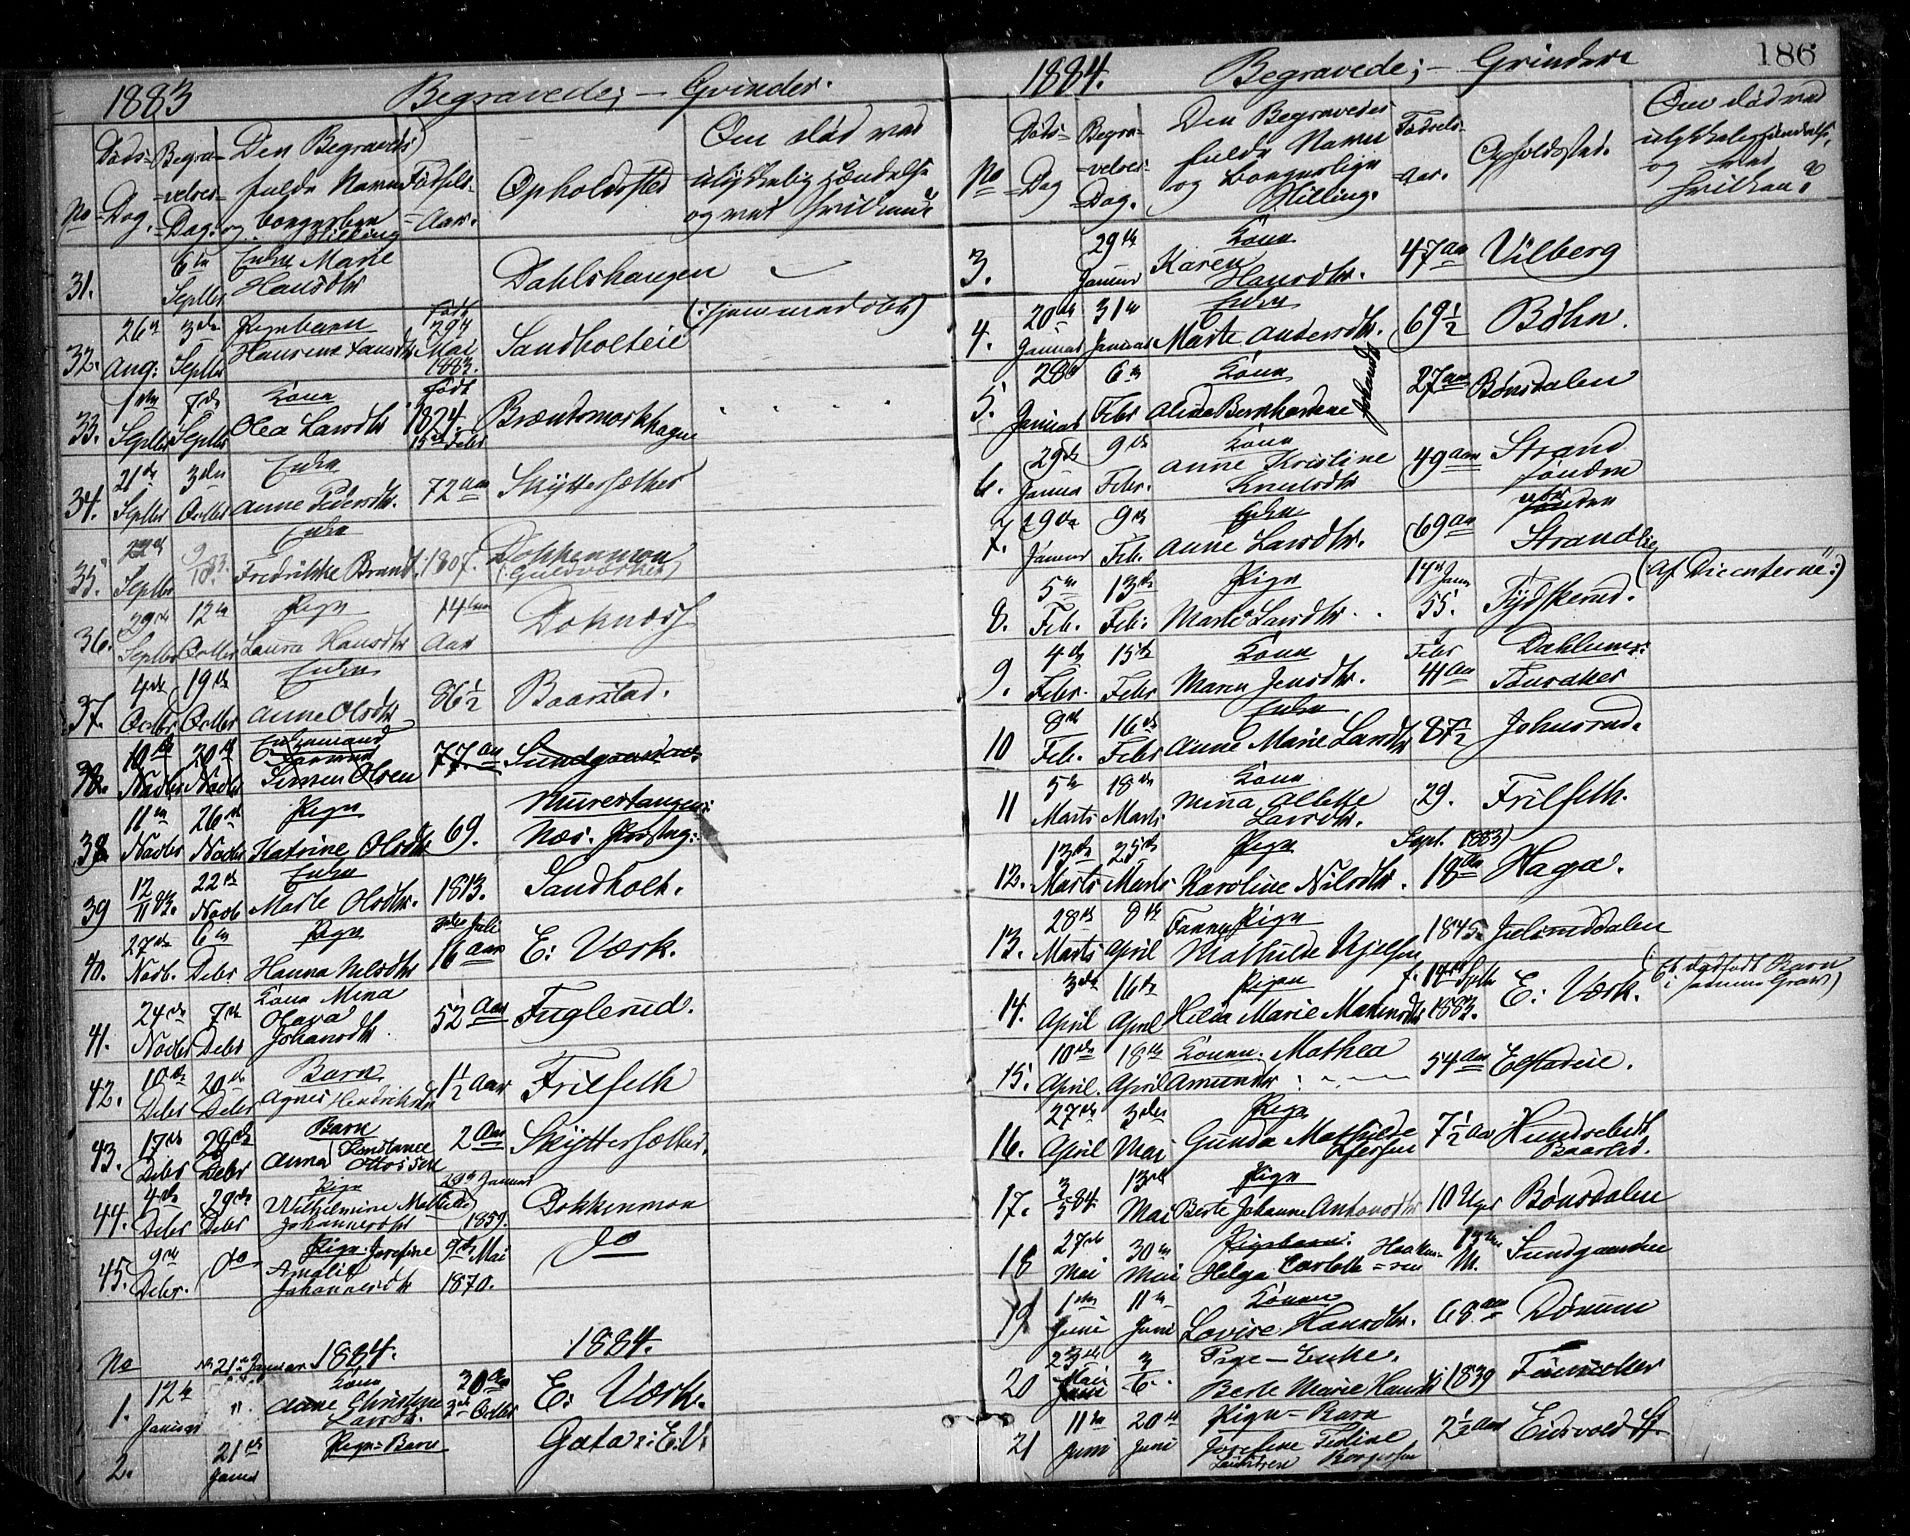 1883 Begravede; – Qvinder.
No
Døds-
Dag.
Begra-
velses-
Dag.
Den Begravedes
fulde Navn
og borgerlige
Stilling
Fødsels-
Aar.
Opholdsted
Om død ved
ulykkelig Hændelse
og ved hvilken?
31. 6te Septbr Enke Marie Hansdtr Dahlshaugen
32. 26de Aug: 3die Septbr Pigebarn Hansine Larsdtr Født 29de Mai 1883. Sandholteie (: hjemmedøbt)
33. 1ste Septbr 7de Septbr Kone Olea Larsdtr født 1824. 15de Febr Brændsmork hagen
34. 21de Septbr 3die Octbr Enke Anne Pedersdtr. 72 Aar Skyttersæther
35. 22de Septbr Enke Fredrikke Brandt. 1807. Dokkenmoen (: Guldværket)
36. 29de Septbr 12te Octbr Pige Laura Hansdtr 14 Aar Doknæss
37. 4de Octbr 19de Octbr Enke Anne Olsdtr 86½ Baarstad.
38. 10de Novbr 20de Novbr Enkemand Simen Olsen 77. Aar Sundgaarden
38. 11te Novbr 26de Novbr Pige Katrine Olsdtr 69. Murestangen: Næs. Præsteg:
39 12/11 83. 22de Novb Enke Marte Olsdtr. 1813. Sandholt.
40. 27de Novb. 6te Debr Pige Hanna Nilsdtr Juli 16 Aar E: Værk.
41. 24de Novbr 7de Debr Kone Mina Olava Johansdtr. 52 Aar Fuglerud.
42. 10de Debr 20de Debr Barn Agnes Hendriksdtr 1½ Aar Frilseth
43. 17de Debr 28de Debr Barn Anna Konstance Ottossen 2 Aar Skyttersæther.
44. 4de Debr 29de Debr Pige Vilhelmine Mathilde Johannesdtr 29de Januar 1859. Dokkenmoen
45. 9de Debr. do Pige Josefine Amalie Johannesdtr 9de Mai 1870. do
No 1884. 1884.
1. 12te Januar 21de Januar Kone Anne Christine Larsdt. 30 Aar Octbr E: Værk.
2. 21de Januar Pige-Barn Gata: E.V.
186
1884. Begravede; – Qvinder
No
Døds-
Dag
Begra-
velses-
Dag.
Den Begravedes
fulde Navn
og borgerlige
Stilling.
Fødsels-
Aar.
Opholdsted.
Om død ved
ulykkelig Hændelse,
og ved
hvilken?
3. 29de Januar Kone Karen Hansdtr. 47 Aar Vilberg
4. 20de Januar 31te Januar Enke Marte Andersdtr. 69½ Bøhn.
5. 28de Januar 6te Febr Kone Alida Bernhardine Johansdtr 27 Aar Bønsdalen
6. 29de Januar 9de Febr. Kone Anne Kristine Knudsdtr 49 Aar Strand søndre
7. 29de Januar 9de Feb. Enke Anne Larsdtr. 69 Aar Strand
8. 5te Feb. 13de Feb. Pige Marte Larsdtr. 14de Janr 55. Tydskerud. (Af Dissenterne:)
9. 4de Febr. 15de Febr Kone Maren Jensdtr. Febr 41 Aar Dahlum
10 8de Feb. 16de Febr Enke Anne Marie Larsdtr 87½ Johnsrud.
11 5te Marts 18de Marts Kone Mina Albette Larsdtr. 29. Frilseth.
12. 13de Marts 25de Marts Pige Karoline Nilsdtr. Sept. 1883) 18 Aar Haga.
13. 28de Marts 8de April Pige Fanny Mathilde 1845. Julsruddalen
14. 3die April 16de April Pigen Hilda Marie f. 14de Septb 1883. E: Værk. (Et dødfødt Barn i samme Grav)
15. 10de April. 18de April Konen. Mathea Amundsdr 54 Aar
16. 27de April 3die Mai Pige Gunda Mathilde 7½ Aar Hundsebeth Baarstad.
17. 3/5 84 13de Mai Pige Berte Johanne Antonsdtr 10 Uger Bønsdalen
18 27de Mai 30te Mai Pigebarn. Helga Carlotte Haaken=sen M. Sundgaarden
19 1ste Juni 11te Juni Konen Lovise Hansdtr. 68. Aar Dønnum
20 23de Mai Juni 3/6. Pige – Enke. Berte Marie Hansdt 1839
21 11te Juni 20de Juni Pige-Barn Josefine Tedine Lauritsen Borgersen 2½ Aar Eidsvold St.